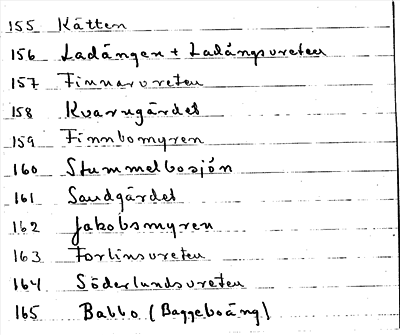 155 Kätten
156 Ladängen + Ladängsvreten
157 Finnarvreten
158 Kvarngärdet
159 Finnbomyren
160 Stummelbosjön
161 Sandgärdet
162 Jakobsmyren
163 Forlinsvreten
164 Söderlundsvreten
165 Babbo (Baggeboäng)